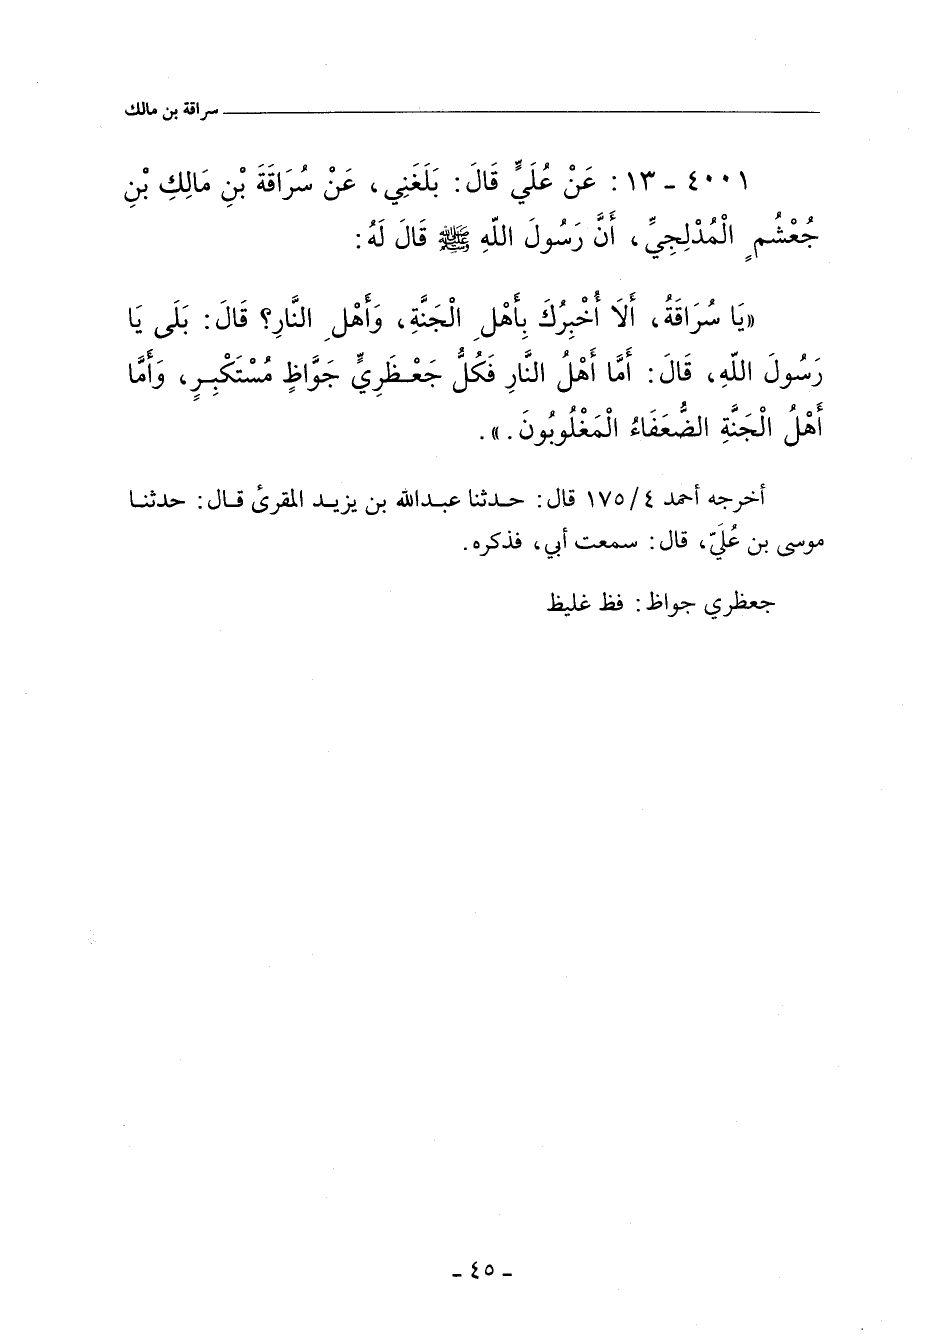 سراقة بن مالك
٤٠٠١ ـ ١٣ : عَنْ عُلَيٍّ قَالَ : بَلَغَنِي ، عَنْ سُرَاقَةَ بْنِ مَالِكِ بْنِ
جُعْشُمٍ الْمُدْلِجِيِّ ، أَنَّ رَسُولَ اللّهِ ﷺ قَالَ لَهُ :
«يَا سُرَاقَةُ ، أَلَا أُخْبِرُكَ بِأَهْلِ الْجَنَّةِ ، وَأَهْلِ النَّارِ؟ قَالَ : بَلَى يَا
رَسُولَ اللّهِ ، قَالَ : أَمَّا أَهْلُ النَّارِ فَكُلُّ جَعْظَرِيٍّ جَوَّاظٍ مُسْتَكْبِرٍ ، وَأَمَّا
أَهْلُ الْجَنَّةِ الضُّعَفَاءُ الْمَغْلُوبُونَ . » .
أخرجه أحمد ٤/ ١٧٥ قال : حدثنا عبدالله بن يزيد المقرئ قال : حدثنا
موسى بن عُلَيّ ، قال : سمعت أبي ، فذكره .
جعظري جواظ : فظ غليظ
ـ ٤٥ ـ